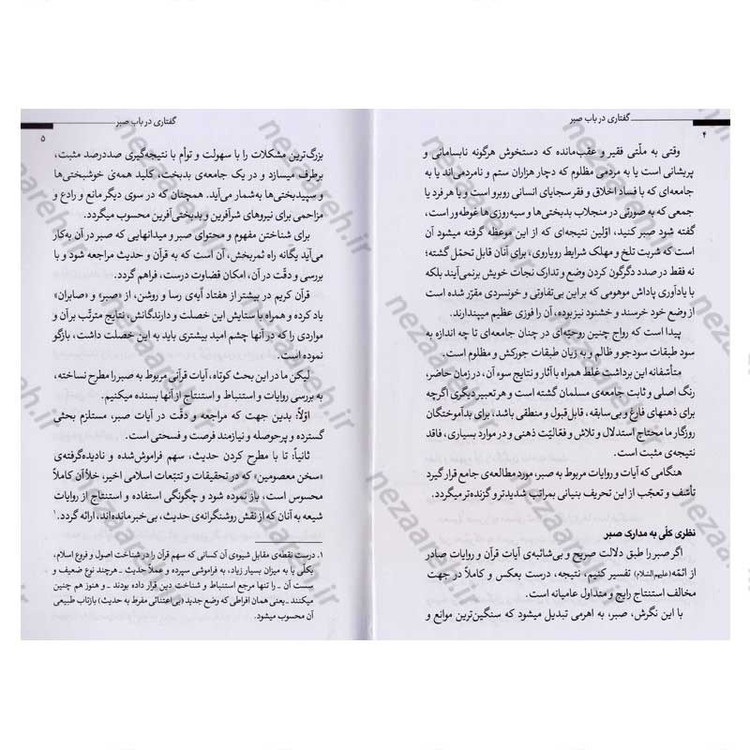 ۴
گفتاری در باب صبر
وقتی به ملّتی فقیر و عقب‌مانده که دستخوش هرگونه نابسامانی و
پریشانی است یا به مردمی مظلوم که دچار هزاران ستم و نامردمی‌اند یا به
جامعه‌ای که با فساد اخلاق و فقر سجایای انسانی روبرو است و یا هر فرد یا
جمعی که به صورتی در منجلاب بدبختی‌ها و سیه‌روزی‌ها غوطه‌ور است،
گفته شود صبر کنید، اوّلین نتیجه‌ای که از این موعظه گرفته میشود آن
است که شربت تلخ و مهلک شرایط رویاروی، برای آنان قابل تحمّل گشته؛
نه فقط در صدد دگرگون کردن وضع و تدارک نجات خویش برنمی‌آیند بلکه
با یادآوری پاداش موهومی که بر این بی‌تفاوتی و خونسردی مقرّر شده است
از وضع خود خرسند و خشنود نیز بوده، آن را فوزی عظیم میپندارند.
پیدا است که رواج چنین روحیّه‌ای در چنان جامعه‌ای تا چه اندازه به
سود طبقات سودجو و ظالم و به زیان طبقات جورکش و مظلوم است.
متأسّفانه این برداشت غلط همراه با آثار و نتایج سوء آن، در زمان حاضر،
رنگ اصلی و ثابت جامعه‌ی مسلمان گشته است و هر تعبیر دیگری اگرچه
برای ذهنهای فارغ و بی‌سابقه، قابل‌قبول و منطقی باشد، برای بدآموختگان
روزگار ما محتاج استدلال و تلاش و فعّالیّت ذهنی و در موارد بسیاری، فاقد
نتیجه‌ی مثبت است.
هنگامی که آیات و روایات مربوط به صبر، مورد مطالعه‌ی جامع قرار گیرد
تأسّف و تعجّب از این تحریف بنیانی بمراتب شدیدتر و گزنده‌تر میگردد.
نظری کلّی به مدارک صبر
اگر صبر را طبق دلالت صریح و بی‌شائبه‌ی آیات قرآن و روایات صادر
از ائمّه (علیهم‌السّلام) تفسیر کنیم، نتیجه، درست بعکس و کاملاً در جهت
مخالف استنتاج رایج و متداول عامیانه است.
با این نگرش، صبر، به اهرمی تبدیل میشود که سنگین‌ترین موانع و
گفتاری در باب صبر
۵
بزرگ‌ترین مشکلات را با سهولت و توأم با نتیجه‌گیری صددرصد مثبت،
برطرف میسازد و در یک جامعه‌ی بدبخت، کلید همه‌ی خوشبختی‌ها
و سپیدبختی‌ها به‌شمار می‌آید. همچنان که در سوی دیگر مانع و رادع و
مزاحمی برای نیروهای شرآفرین و بدبختی‌آفرین محسوب میگردد.
برای شناختن مفهوم و محتوای صبر و میدانهایی که صبر در آن به‌کار
می‌آید یگانه راه ثمربخش، آن است که به قرآن و حدیث مراجعه شود و با
بررسی و دقّت در آن، امکان قضاوت درست، فراهم گردد.
قرآن کریم در بیشتر از هفتاد آیه‌ی رسا و روشن، از «صبر» و «صابران»
یاد کرده و همراه با ستایش این خصلت و دارندگانش، نتایج مترتّب بر آن و
مواردی را که در آنها چشم امید بیشتری باید به این خصلت داشت، بازگو
نموده است.
لیکن ما در این بحث کوتاه، آیات قرآنی مربوط به صبر را مطرح نساخته،
به بررسی روایات و استنباط و استنتاج از آنها بسنده میکنیم.
اوّلاً: بدین جهت که مراجعه و دقّت در آیات صبر، مستلزم بحثی
گسترده و پرحوصله و نیازمند فرصت و فسحتی است.
ثانیاً: تا با مطرح کردن حدیث، سهم فراموش‌شده و نادیده‌گرفته‌ی
«سخن معصومین» که در تحقیقات و تتبّعات اسلامی اخیر، خلأ آن کاملاً
محسوس است، باز نموده شود و چگونگی استفاده و استنتاج از روایات
شیعه به آنان که از نقش روشنگرانه‌ی حدیث، بی‌خبر مانده‌اند، ارائه گردد.۱
۱. درست نقطه‌ی مقابل شیوه‌ی آن کسانی که سهم قرآن را در شناخت اصول و فروع اسلام،
بکلّی یا به میزان بسیار زیاد، به فراموشی سپرده و عملاً حدیث ـ هرچند نوع ضعیف و
سست آن ـ را تنها مرجع استنباط و شناخت دین قرار داده بودند ـ و هنوز هم چنین
میکنند ـ یعنی همان افراطی که وضع جدید (بی‌اعتنائی مفرط به حدیث) بازتاب طبیعی
آن محسوب میشود.
nezaareh.ir